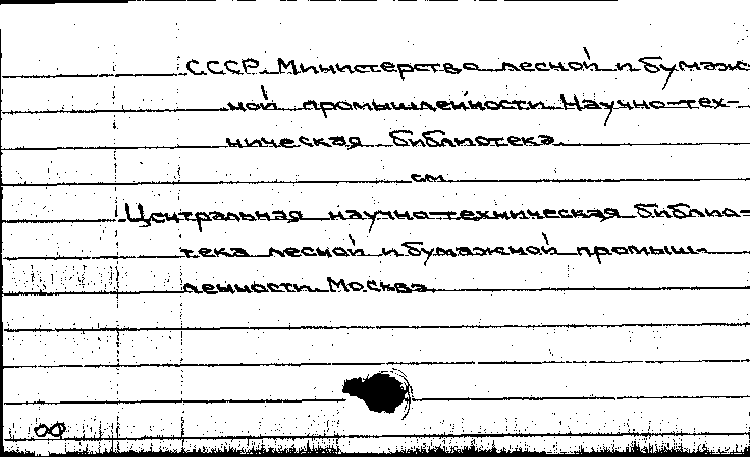 СССР. Министерство лесной и бумаж-
ной промышленности. Научно-тех-
ническая библиотека.
см.
Центральная научно-техническая библио-
тека лесной и бумажной промыш-
ленности. Москва.